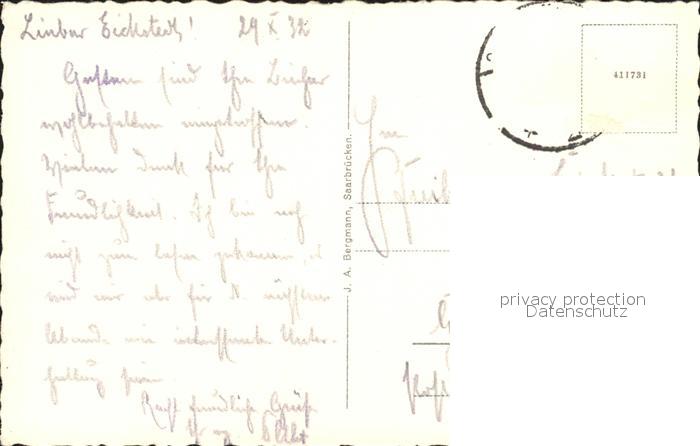 Lieber Eickstedt! 29 X 32
Gestern sind Ihre Bücher
wohlbehalten eingetroffen.
Vielen Dank für Ihre
Freundlichkeit. Ich bin noch
nicht zum lesen gekommen, es
wird mir aber für d. nächsten
Abende eine interessante Unter-
haltung sein.
Recht freundliche Grüße
J. A. Bergmann, Saarbrücken.
411731
privacy protection
Datenschutz